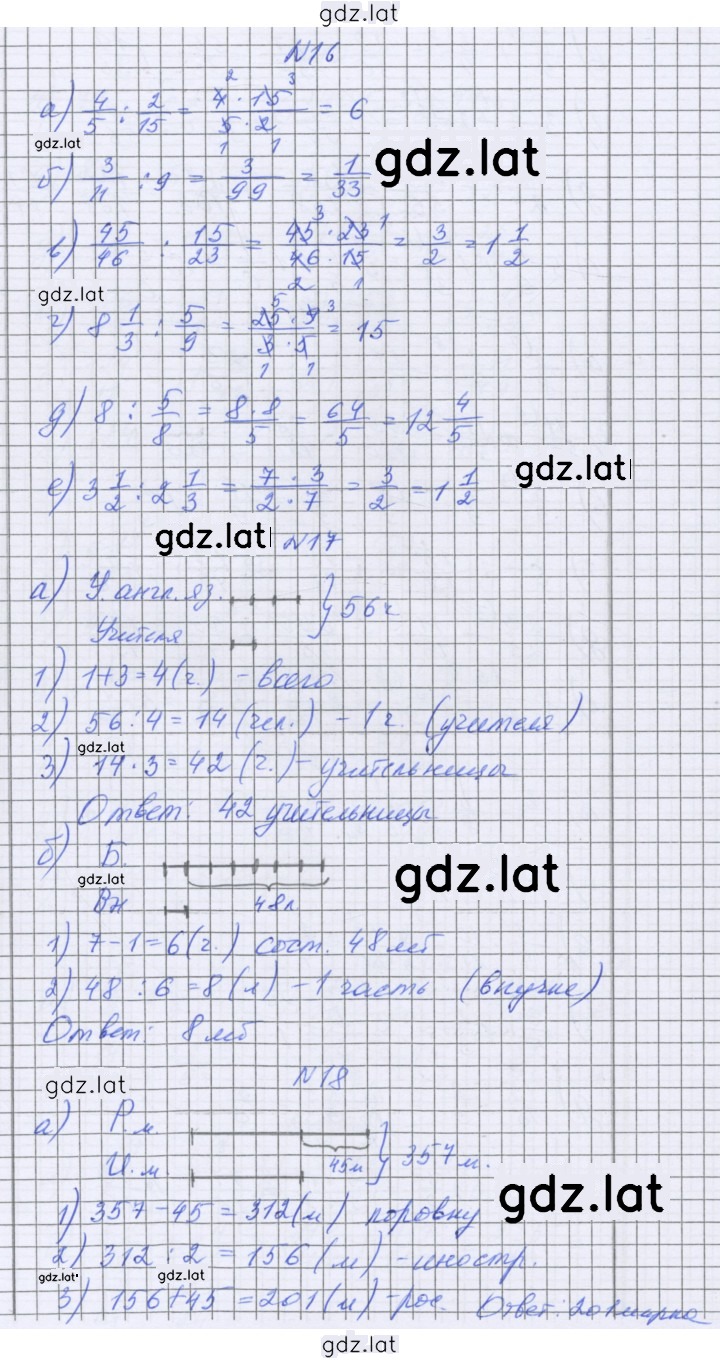 gdz.lat
N16
а) 4/5 : 2/15 = 4² · 15³ / 5₁ · 2₁ = 6
gdz.lat
gdz.lat
б) 3/11 : 9 = 3/99 = 1/33
в) 45/46 : 15/23 = 45³ · 23¹ / 46₂ · 15₁ = 3/2 = 1 1/2
gdz.lat
г) 8 1/3 : 5/9 = 25⁵ · 9³ / 3₁ · 5₁ = 15
д) 8 : 5/8 = 8 · 8 / 5 = 64/5 = 12 4/5
gdz.lat
е) 3 1/2 : 2 1/3 = 7 · 3 / 2 · 7 = 3/2 = 1 1/2
gdz.lat
N17
а) У. англ. яз. } 56 ч
Учителя
1) 1+3=4(ч.) - всего
2) 56 : 4 = 14 (чел.) - 1 ч. (учителя)
gdz.lat
3) 14 · 3 = 42 (ч.) - учительницы
Ответ: 42 учительницы
б) Б.
gdz.lat
gdz.lat
Вн 48л.
1) 7-1=6(ч.) сост. 48 лет
2) 48 : 6 = 8 (л) - 1 часть (внучке)
Ответ: 8 лет
N18
gdz.lat
а) Р.м.
45м } 357м.
И.м.
gdz.lat
1) 357-45 = 312(м) поровну
2) 312 : 2 = 156 (м) - иностр.
gdz.lat
gdz.lat
3) 156+45 = 201(м) - рос. Ответ: 201 марка
gdz.lat